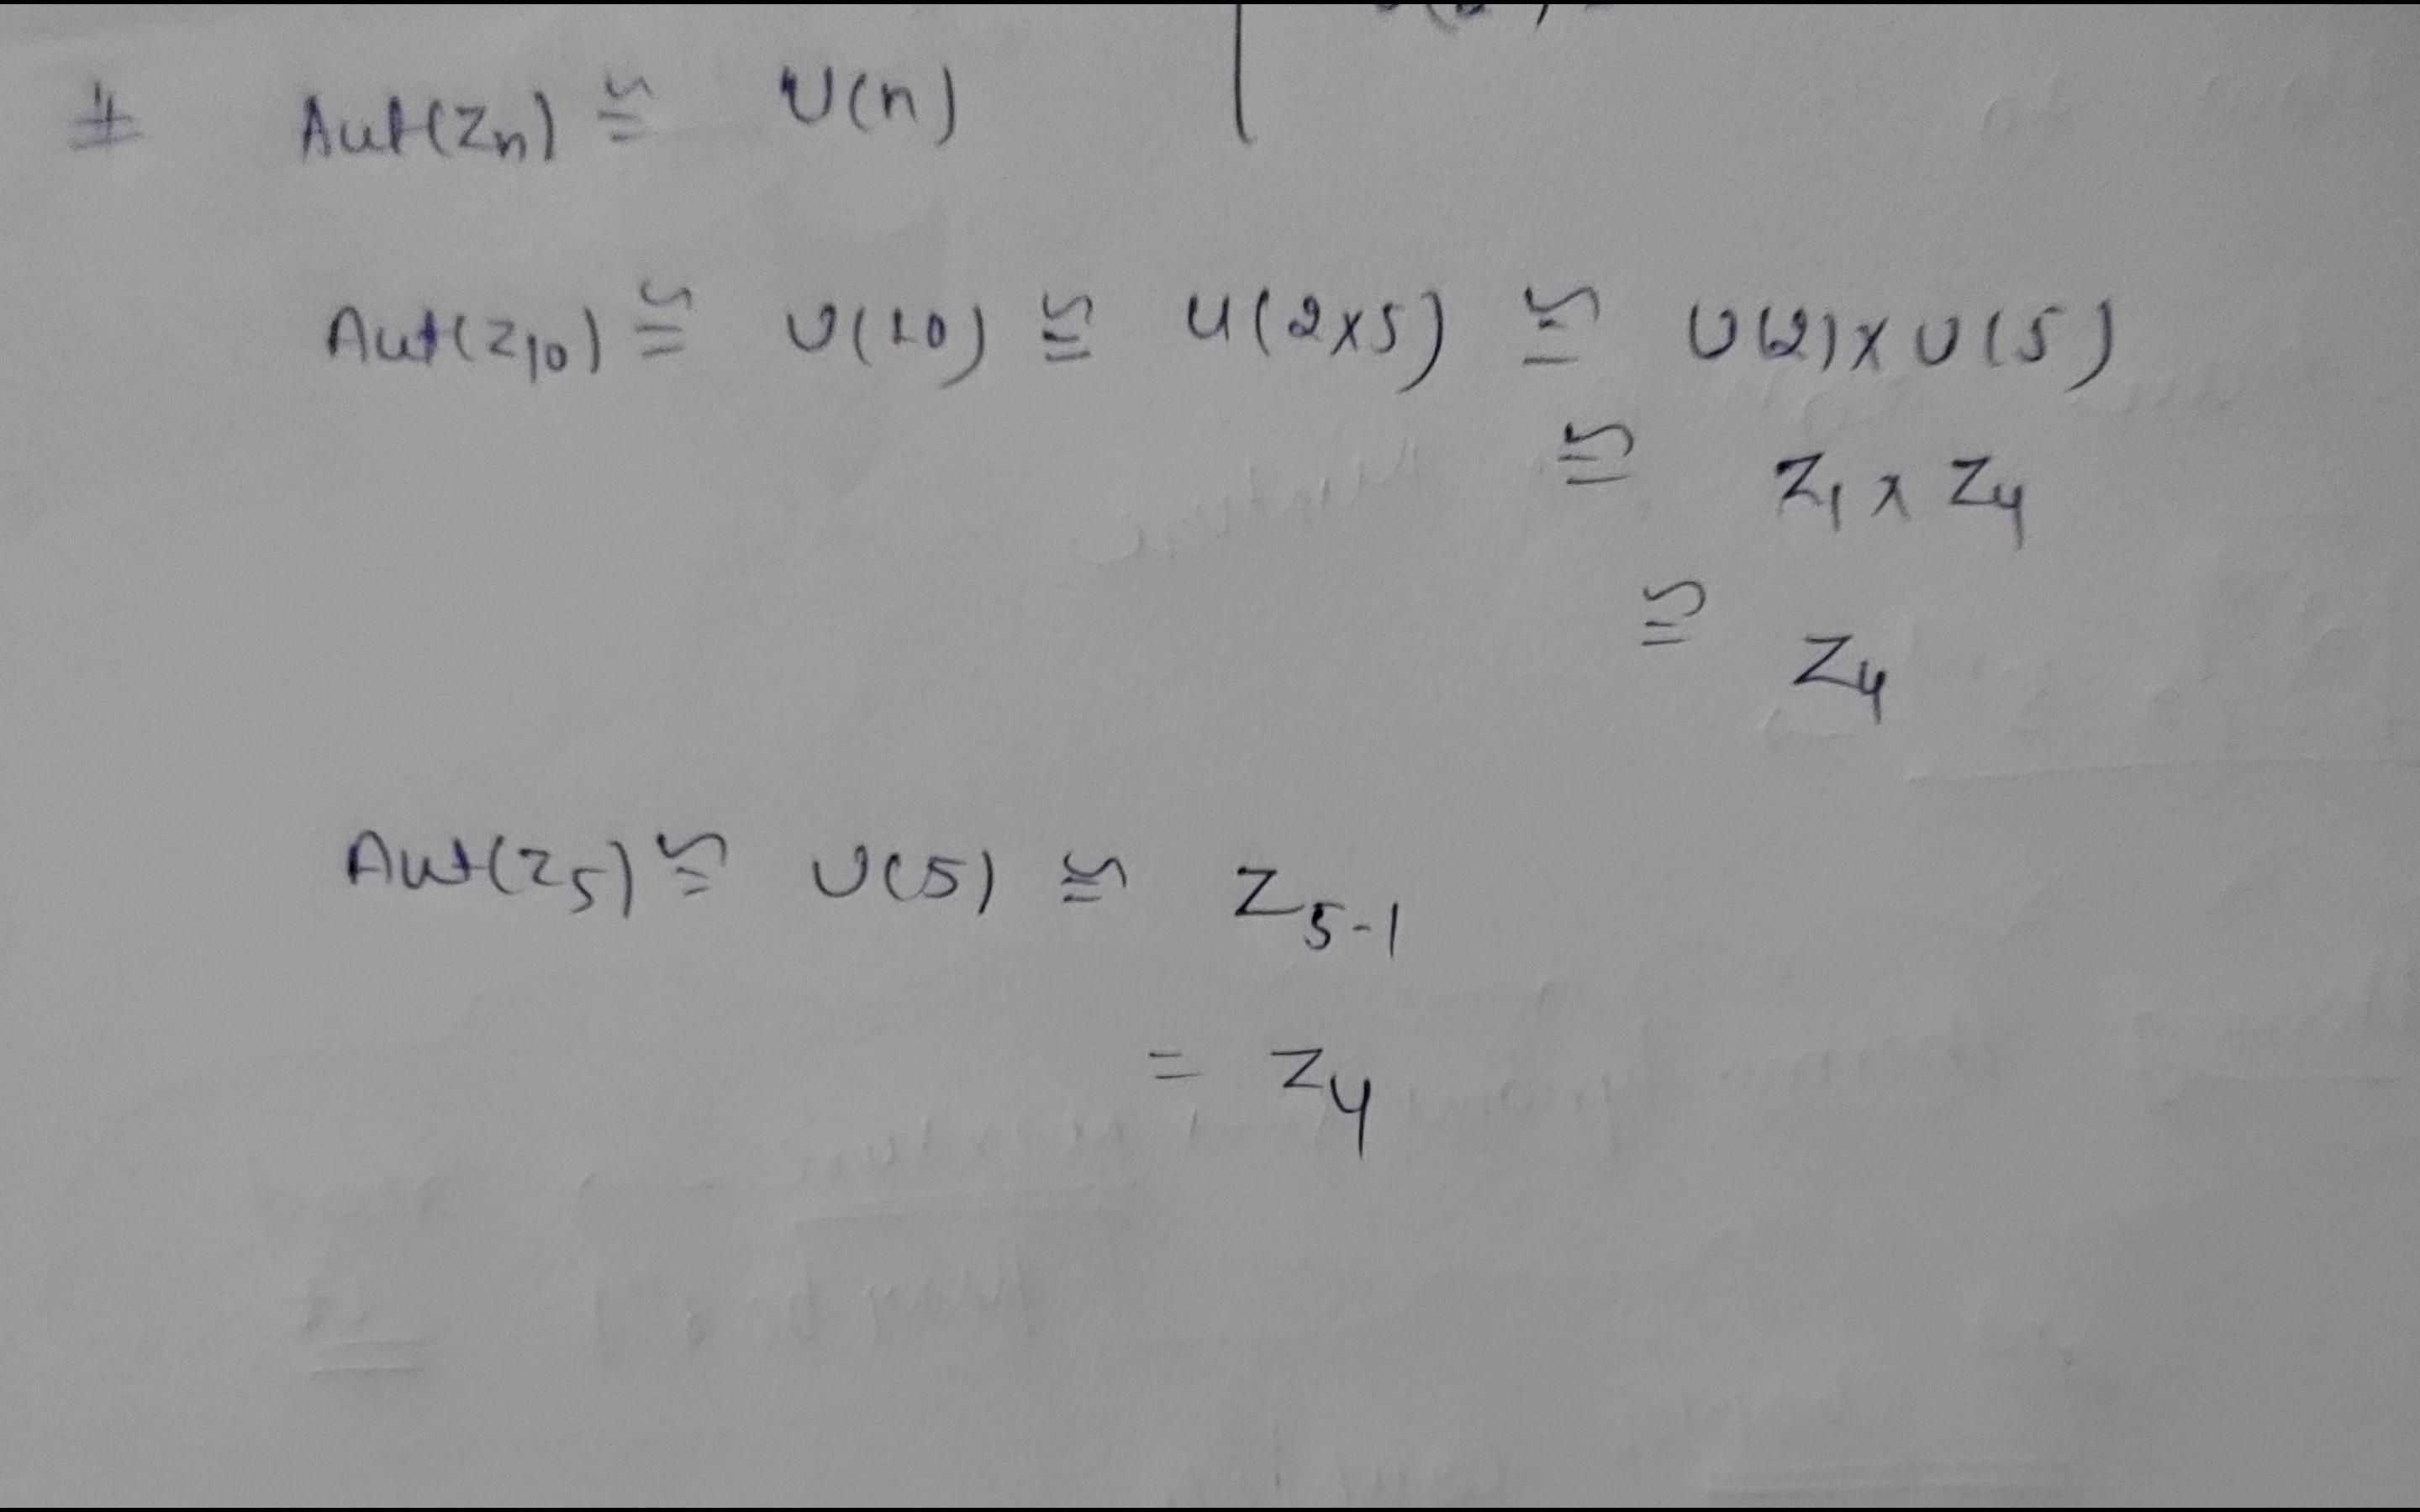 # Aut(Zn) ≅ U(n)
Aut(Z10) ≅ U(10) ≅ U(2x5) ≅ U(2) x U(5)
≅ Z1 x Z4
≅ Z4
Aut(Z5) ≅ U(5) ≅ Z5-1
= Z4